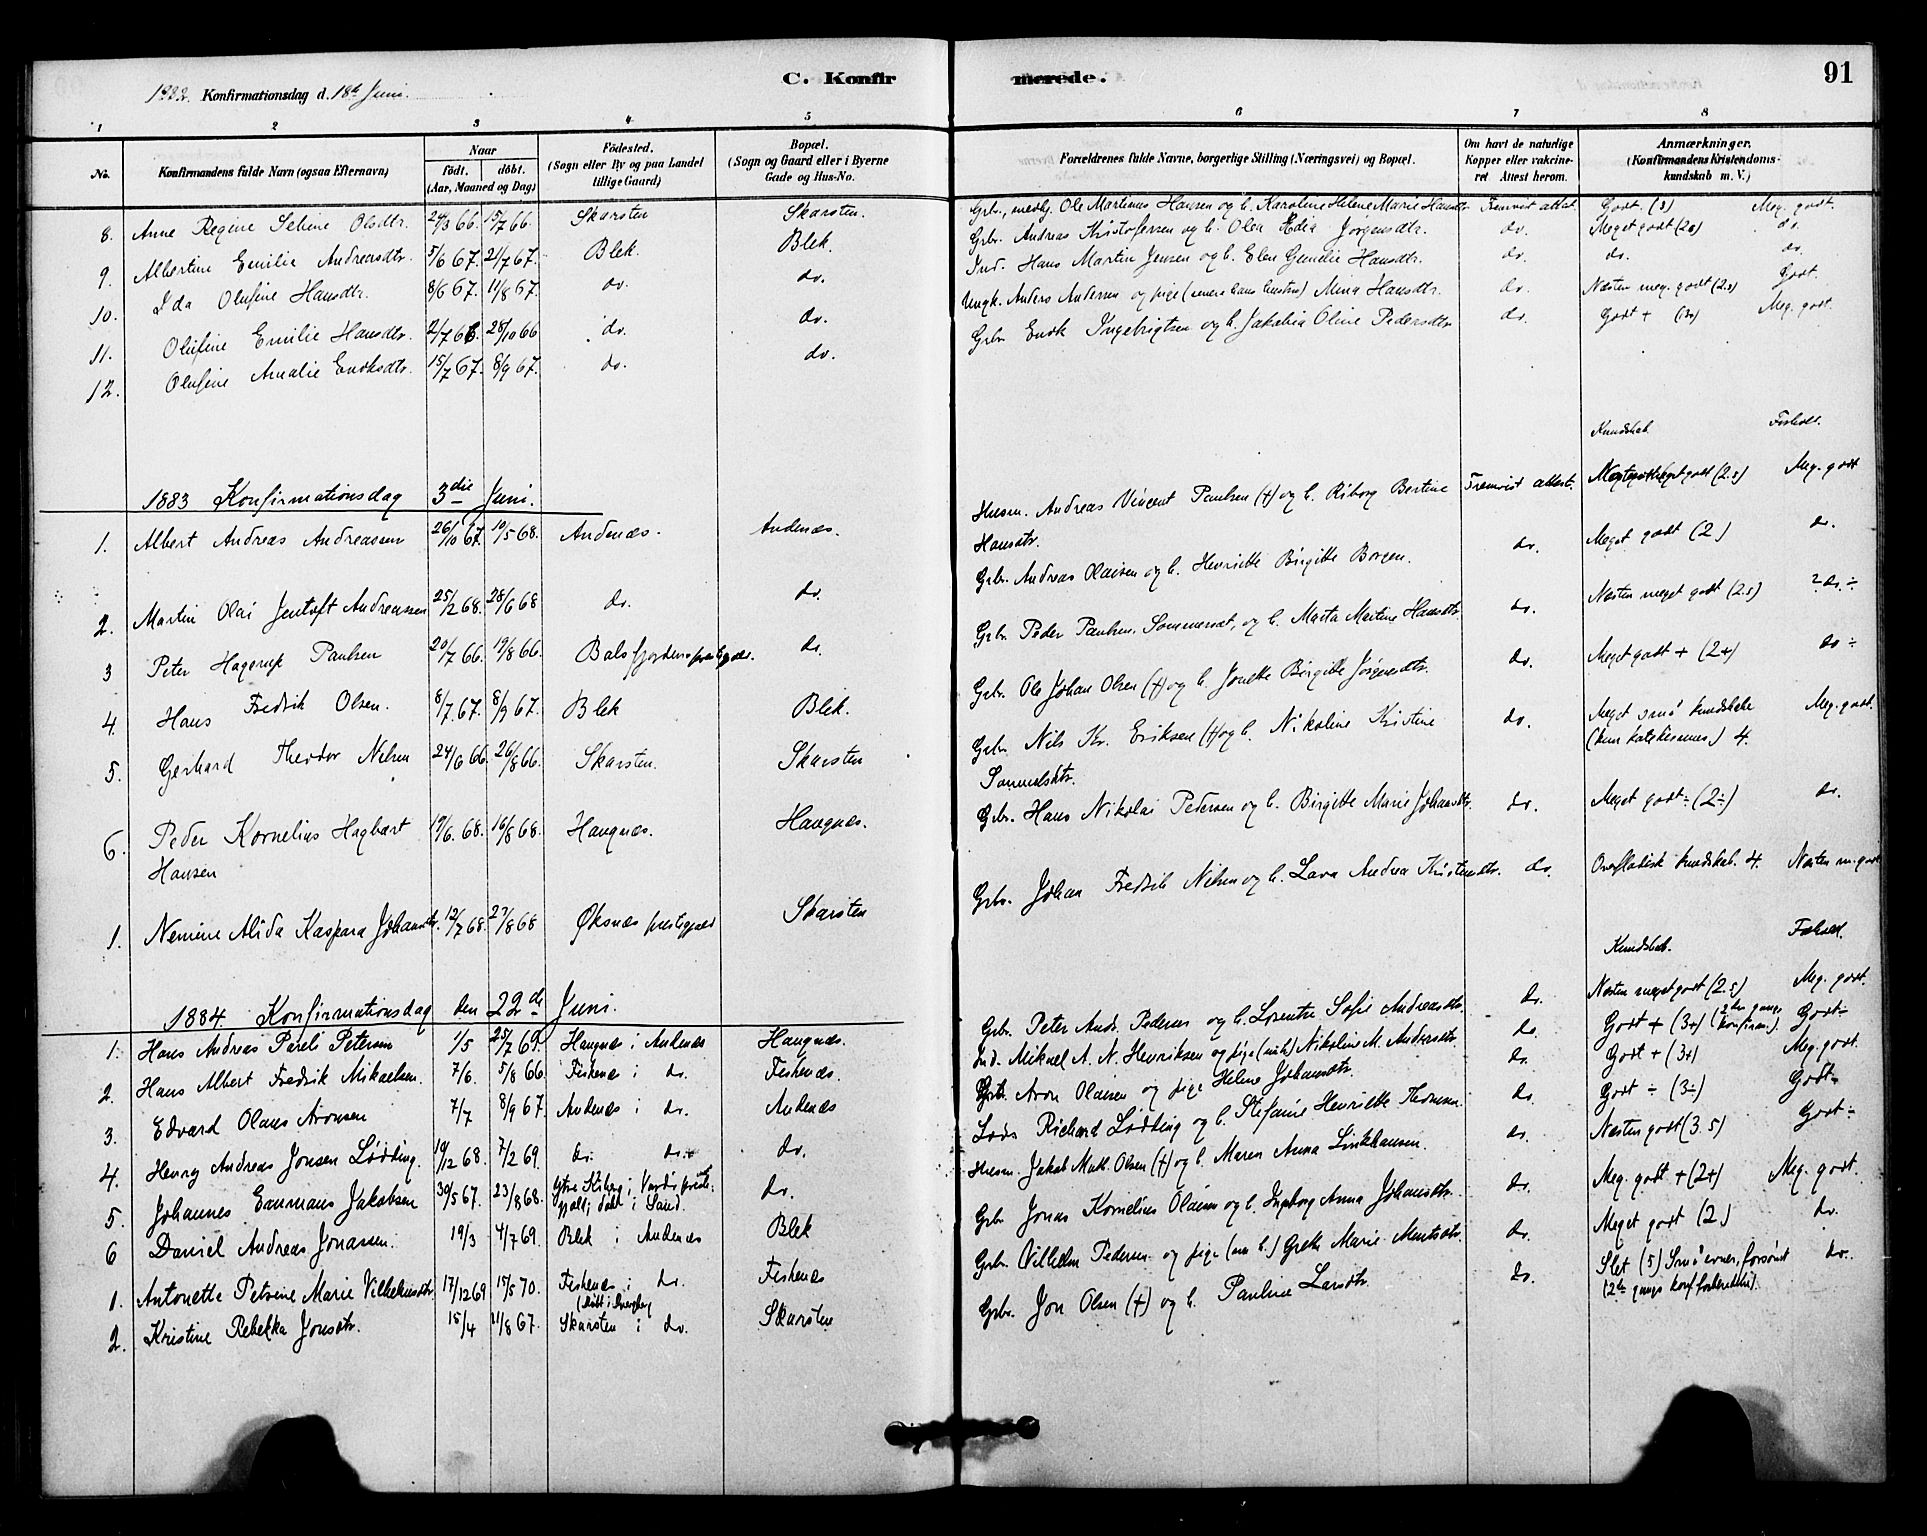 C. Konfirmerede.
91
1882. Konfirmationsdag d. 18de Juni.
1 2 3 4 5 6 7 8
No.
Konfirmandens fulde Navn (ogsaa Efternavn)
Naar
födt. döbt.
(Aar, Maaned og Dag)
Födested.
(Sogn eller By og paa Landet
tillige Gaard)
Bopæl.
(Sogn og Gaard eller i Byerne
Gade og Hus-No.
Forældrenes fulde Navne, borgerlige Stilling (Næringsvei) og Bopæl.
Om havt de naturlige
Kopper eller vakcine-
ret Attest herom.
Anmærkninger.
(Konfirmandens Kristendoms-
kundskab m. V.)
8. Anne Regine Seline Olsdtr. 24/3 66. 15/7 66. Skarsten Skarsten. Grbr., medhj. Ole Martinus Hansen og h. Karoline Helene Marie Hansdtr. Fremvist attest. Godt. (3) Meg. godt.
9. Albertine Emilie Andreasdtr. 5/6 67. 21/7 67. Blek. Blek. Grbr. Andreas Kristofersen og h. Olea Edia Jørgensdtr. do. Meget godt (2) do.
10. Ida Olufine Hansdtr. 8/6 67. 11/8 67. do. do. Ind. Hans Martin Jensen og h. Elen Gurine Hansdtr. do. do. do.
11. Olufine Emilie Hansdtr. 2/7 66. 28/10 66 do. do. Ungk. Anders Andersen og pige (senere hans hustru) Mina Hansdtr. do. Næsten meg. godt (2.5) Godt.
12. Olufine Amalie Enoksdtr. 15/7 67. 8/9 67. do. do. Grbr. Enok Ingebrigtsen og h. Jakobia Oline Pedersdtr. do. Godt + (3+) Meg. godt.
Kundskab. Forhold.
1883 Konfirmationsdag 3die Juni.
1. Albert Andreas Andreassen 26/10 67. 10/5 68. Andenæs. Andenæs. Husm. Andreas Vincent Paulsen (+) og h. Riborg Bertine Fremvist attest. Næsten meget godt (2.5) Meg. godt
Hansdtr.
2. Martin Olai Jentoft Andreassen 25/2 68. 28/6 68 do. do. Grbr. Andreas Olaisen og h. Henriette Birgitte Borgen. do. Meget godt (2) do.
3 Peter Hagerup Paulsen 20/7 66. 19/8 66. Balsfjordens prestegjæld. do. Grbr. Peder Paulsen, Sommersæt, og h. Marta Martine Hansdtr. do. Næsten meget godt (2.5) do. ÷
4. Hans Fredrik Olsen. 8/7 67. 8/9 67. Blek Blek. Grbr. Ole Johan Olsen (+) og h. Jonette Birgitte Jørgensdtr. do. Meget godt + (2+) do ÷
5. Gerhard Theodor Nilsen 24/6 66. 26/8 66. Skarsten. Skarsten Grbr. Nils Kr. Eriksen (+) og h. Nikoline Kristine do. Meget små kundskaber Meg. godt.
Samuelsdtr. (kun katekismus) 4.
6. Peder Kornelius Hagbart 19/6. 68. 16/8 68. Haugnæs. Haugnæs. Grbr. Hans Nikolai Pedersen og h. Birgitte Marie Johansdtr. do. Meget godt ÷ (2÷) do.
Hansen
1. Nemine Alida Kaspara Johansdtr. 12/7 68. 27/8 68 Øksnæs prestegjæld Skarsten Grbr. Johan Fredrik Nilsen og h. Lava Andrea Kristensdtr. do. Overfladisk kundskab. 4. Næsten m. godt
Kundskab. Forhold.
1884. Konfirmationsdag den 22de Juni.
1. Hans Andreas Pareli Petersen 1/5 25/7 69. Haugnæs i Andenæs Haugnæs. Grbr. Peter Andr. Pedersen og h. Lorentze Sofie Andreasdtr. do. Næsten meget godt (2.5) Meg. godt.
2. Hans Albert Fredrik Mikaelsen. 7/6. 5/8 66. Fiskenæs i do. Fiskenæs. Ind. Mikael A. N. Henriksen og pige Nikoline M. Andersdtr. do. Godt + (3+) (2den gangs konfirm.) Godt ÷
3. Edvard Olaus Aronsen 7/7 8/9 67. Andenæs i do. Andenæs Grbr. Aron Olaisen og pige Helene Johansdtr. do. Godt + (3+) Meg. godt.
4. Henry Andreas Jonsen Lødding. 10/12 68. 7/2 69. do. do. do. Lods Richard Lødding og h. Stefanie Henriette Thomsen. do. Godt ÷ (3÷) Godt ÷
5. Johannes Emmaus Jakobsen 30/5 67. 23/8 68. Ytre Kiberg i Vardø preste- do. Husm. Jakob Math. Olsen (+) og h. Maren Anna Linkhausen. do. Næsten godt (3.5) Godt ÷
gjæld; døbt i Sand.
6 Daniel Andreas Jonassen. 19/3 4/7 69. Blek i Andenæs Blek Grbr. Jonas Kornelius Olaisen og h. Ingeborg Anna Johansdtr. do. Meg. godt + (2+) Meg. godt.
1. Antonette Petrine Marie Vilhelmsdtr. 17/12 69 15/5 70. Fiskenæs i do. Fiskenæs Grbr. Vilhelm Pedersen og pige Grethe Marie Mentsdtr. do. Meget godt (2) do.
(døbt i Dverberg)
2. Kristine Rebekka Jonsdtr. 15/4 11/8 67. Skarsten i do. Skarsten Grbr. Jon Olsen (+) og h. Pauline Larsdtr. do. Slet (5) Små evner, forsømt do.
(2den gangs konf. forberedelse).